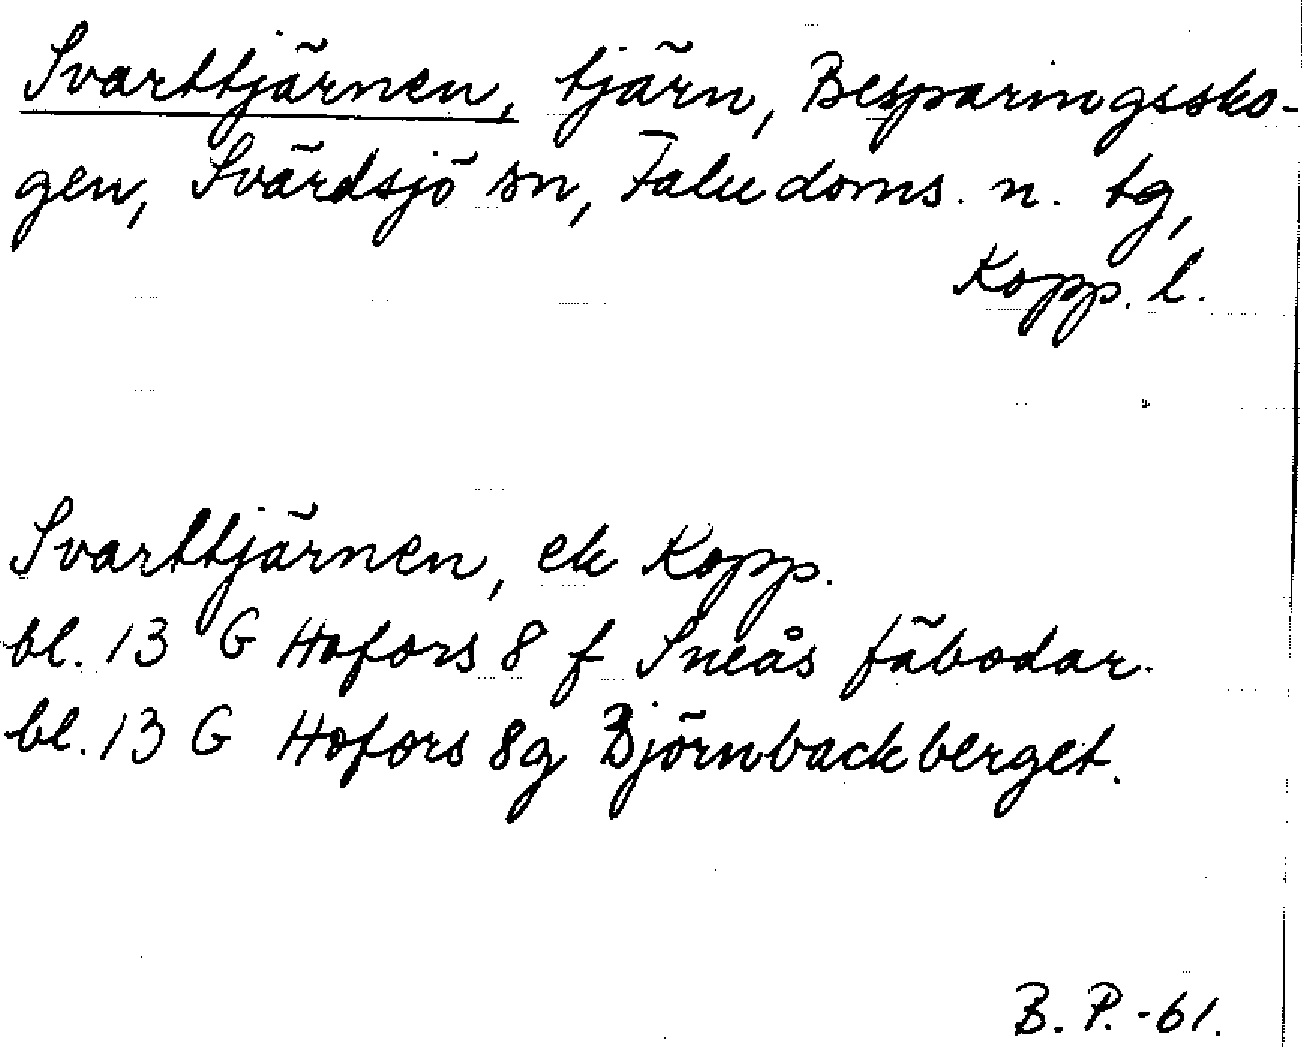 Svarttjärnen, tjärn, Besparingssko-
gen, Svärdsjö sn, Falu doms. n. tg,
Kopp. l.
Svarttjärnen, ek Kopp.
bl. 13 G Hofors 8 f Sneås fäbodar.
bl. 13 G Hofors 8g Björnbackberget.
B. P. -61.